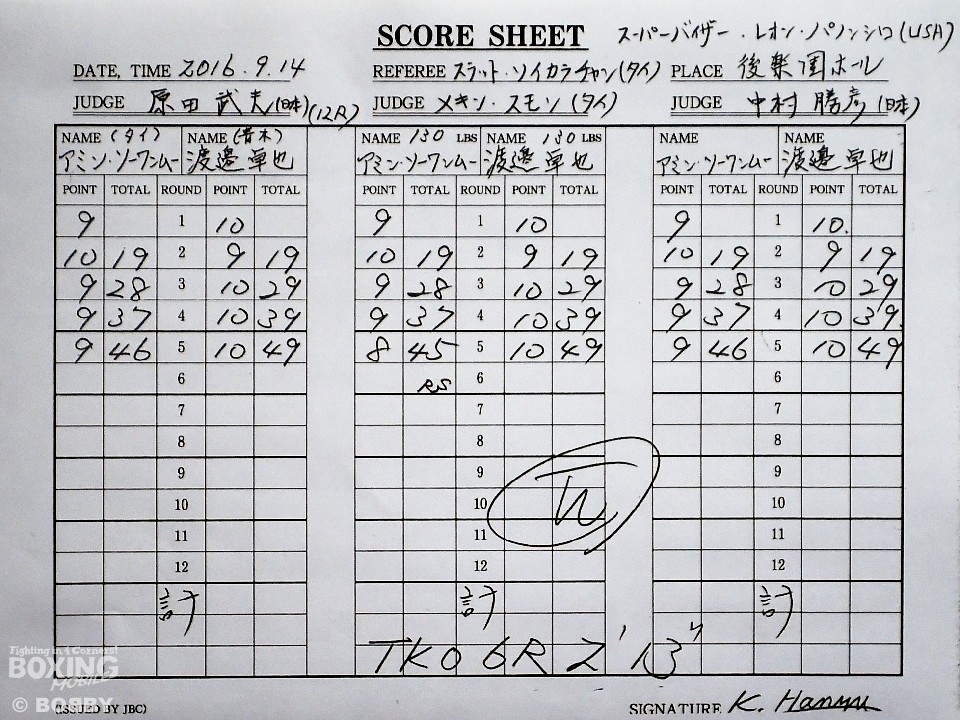 SCORE SHEET スーパーバイザー・レオン・パノンシロ(USA)
DATE, TIME 2016.9.14 REFEREE スラット・ソイカラチャン(タイ) PLACE 後楽園ホール
JUDGE 原田武夫(日本)(12R) JUDGE メキン・スモン(タイ) JUDGE 中村勝彦(日本)
NAME (タイ) NAME (青木) NAME 130 LBS NAME 130 LBS NAME NAME
アミン・ソーワンムー 渡邉卓也 アミン・ソーワンムー 渡邉卓也 アミン・ソーワンムー 渡邉卓也
POINT TOTAL ROUND POINT TOTAL POINT TOTAL ROUND POINT TOTAL POINT TOTAL ROUND POINT TOTAL
9 1 10 9 1 10 9 1 10.
10 19 2 9 19 10 19 2 9 19 10 19 2 9 19
9 28 3 10 29 9 28 3 10 29 9 28 3 10 29
9 37 4 10 39 9 37 4 10 39 9 37 4 10 39.
9 46 5 10 49 8 45 5 10 49 9 46 5 10 49
6 RS 6 6
7 7 7
8 8 8
9 9 9
10 10 W 10
11 11 11
12 12 12
計 計 計
TKO 6R 2'13"
Fighting in 4 Corners!
BOXING
MOBILE
© BOBBY
(ISSUED BY JBC) SIGNATURE K.